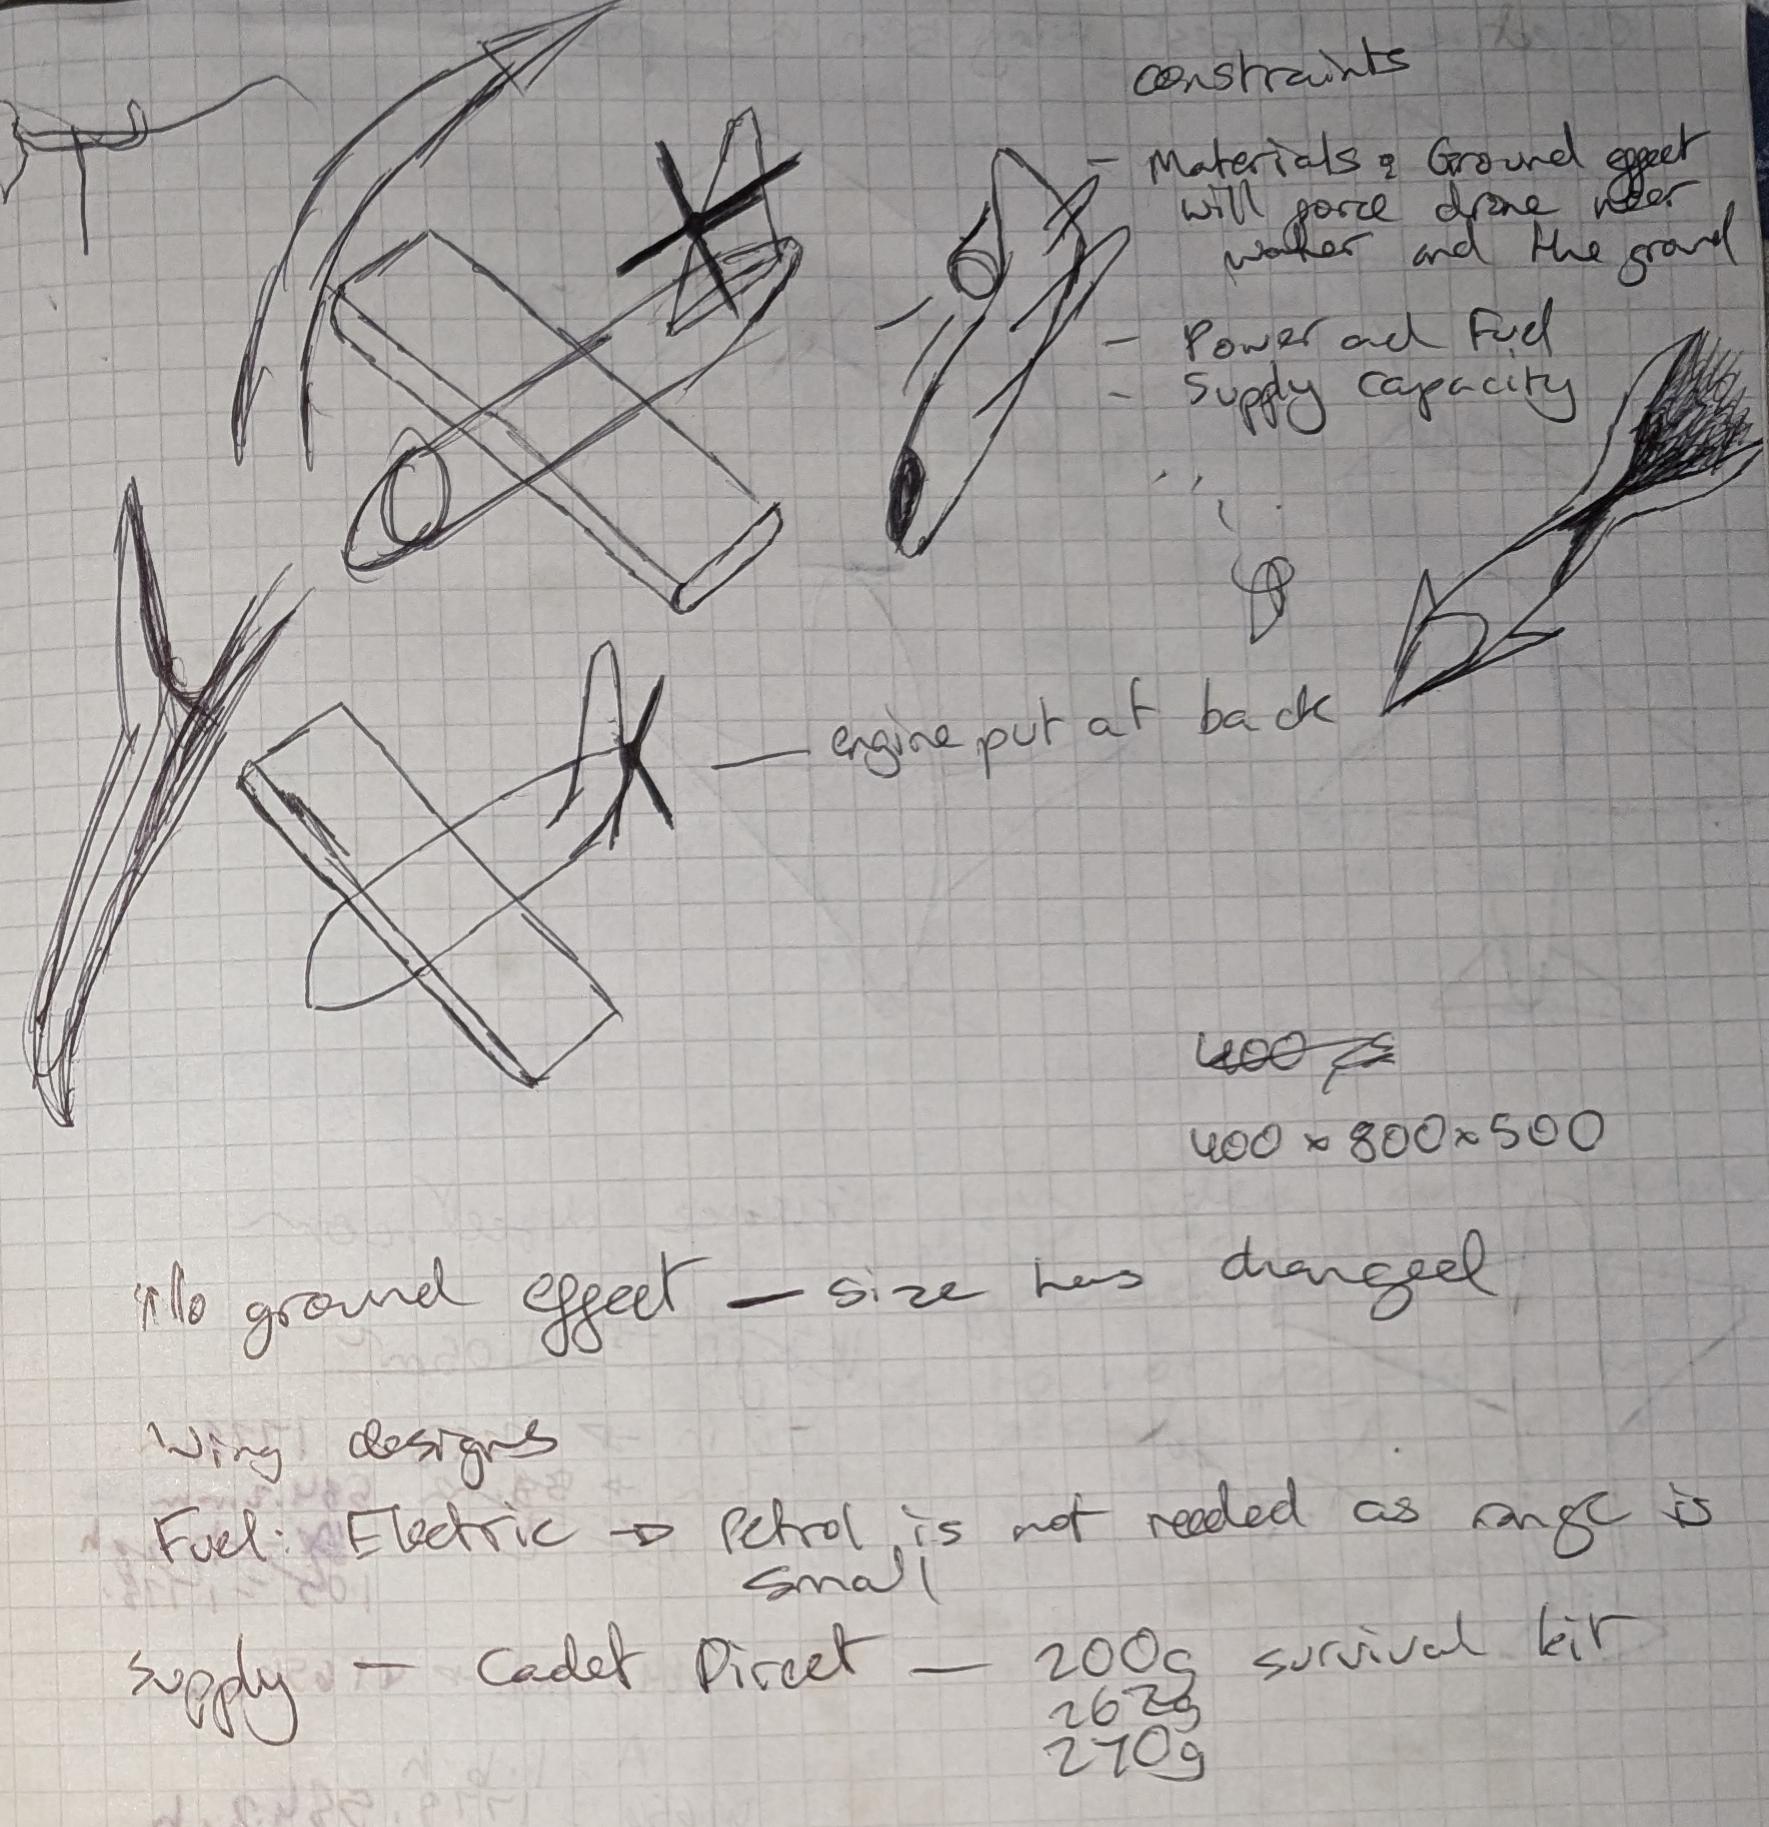 constraints
- Materials & Ground effect
will force drone near
water and the ground
- Power and Fuel
- Supply capacity
engine put at back
400
400 x 800 x 500
No ground effect - size has changed
Wing designs
Fuel: Electric → Petrol is not needed as range is
small
Supply - Cadet Direct - 200g survival kit
262g
270g